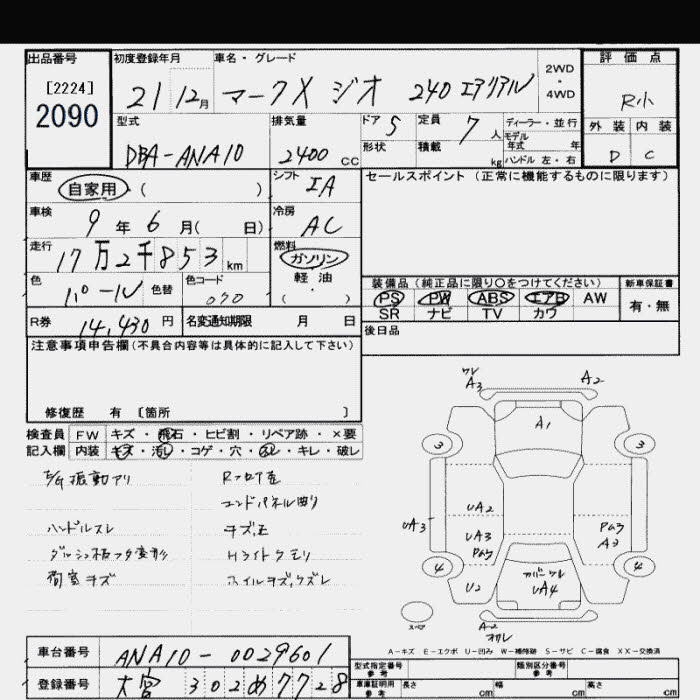 出品番号
[2224]
2090
初度登録年月
21 12月
車名・グレード
マークX ジオ 240 エアリアル
2WD
4WD
評価点
R小
外装 内装
D C
型式
DBA-ANA10
排気量
2400 CC
ドア 5
形状
定員 7 人
積載 kg
ディーラー・並行
モデル年式 年
ハンドル 左・右
車歴
自家用 ( )
シフト
IA
セールスポイント (正常に機能するものに限ります)
車検
9年 6月( 日)
冷房
AC
走行
17万2千853 km
燃料
ガソリン
軽油
( )
色
パール
色替
色コード
070
装備品 (純正品に限り○をつけてください)
PS PW ABS エアB AW
SR ナビ TV カワ
新車保証書
有・無
R券 14,430 円
名変通知期限 月 日
後日品
注意事項申告欄 (不具合内容等は具体的に記入して下さい)
修復歴 有 [箇所 ]
検査員
記入欄
FW キズ・飛石・ヒビ割・リペア跡・×要
内装 キズ・汚れ・コゲ・穴・スレ・キレ・破レ
振動アリ
ハンドルスレ
荷室キズ
Rフロア歪
エンドパネル曲り
キズ、エ
Hライトクモリ
ホイルキズ、クズレ
ワレ
A3
A2
A1
3
3
UA2
UA3
UA3
Paラ
Paラ
A3
4
4
U2
カバーワレ
UA4
A2
オレ
スペア
A-キズ E-エクボ U-凹み W-補修跡 S-サビ C-腐食 XX-交換済
車台番号 ANA10-0029601
登録番号 大宮 302 め 7728
型式指定番号
参考
類別区分番号
参考
車庫証明用
参考
長さ cm
幅 cm
高さ cm